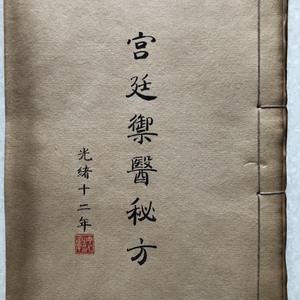 宫廷御醫秘方
光緒十二年